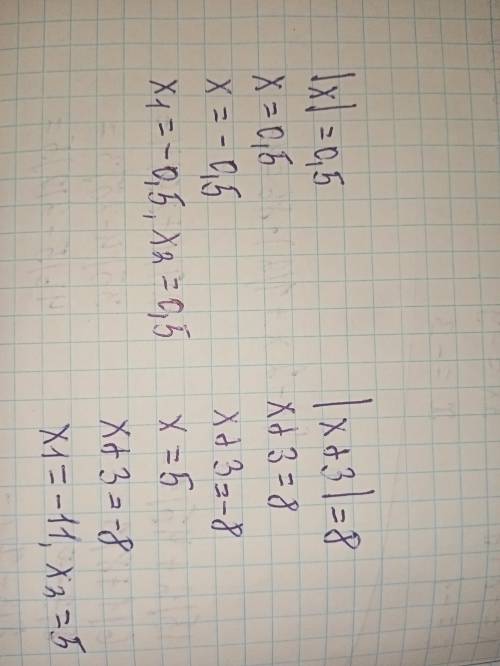 |x| = 0,5
x = 0,5
x = -0,5
x1 = -0,5, x2 = 0,5
|x+3| = 8
x+3 = 8
x+3 = -8
x = 5
x+3 = -8
x1 = -11, x2 = 5